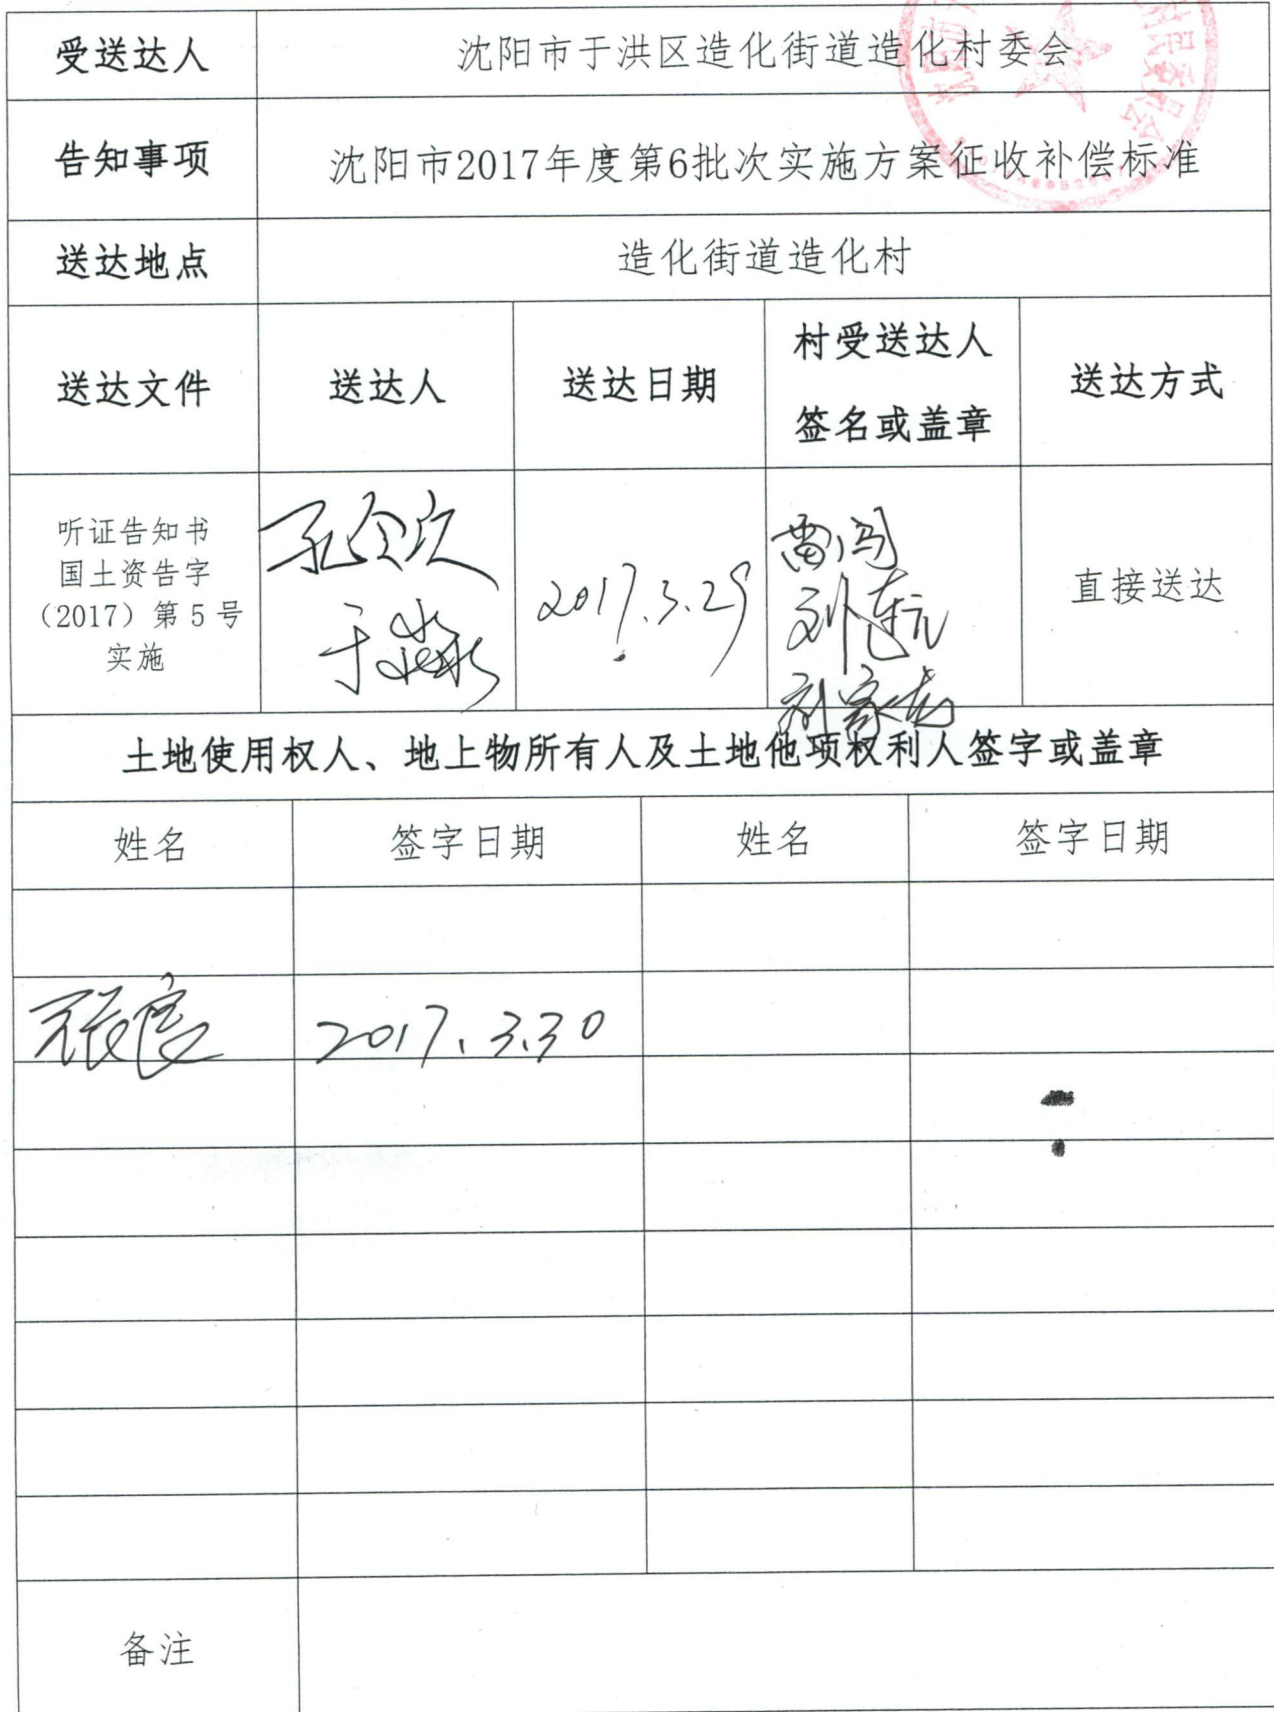 受送达人 沈阳市于洪区造化街道造化村委会
告知事项 沈阳市2017年度第6批次实施方案征收补偿标准
送达地点 造化街道造化村
送达文件 送达人 送达日期 村受送达人 签名或盖章 送达方式
听证告知书
国土资告字
（2017）第5号
实施
于淼
2017.3.29
雷闯
刘连元
刘家志
直接送达
土地使用权人、地上物所有人及土地他项权利人签字或盖章
姓名 签字日期 姓名 签字日期
张良 2017.3.30
备注